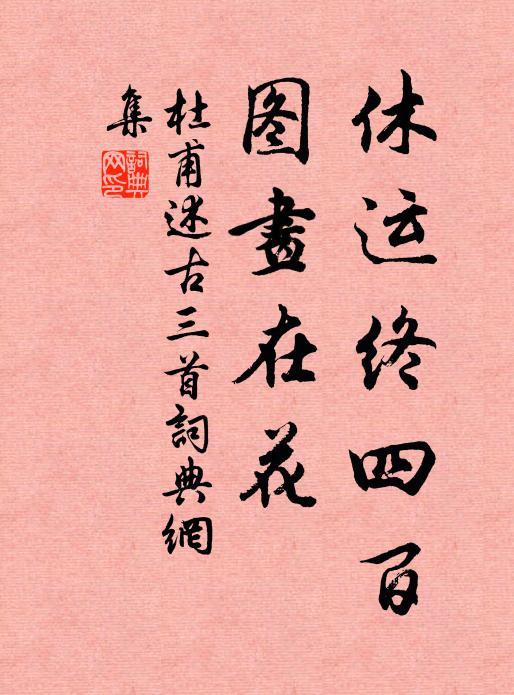 休运终四百
图畫在花
杜甫述古三首詞典網
集
詞典网印